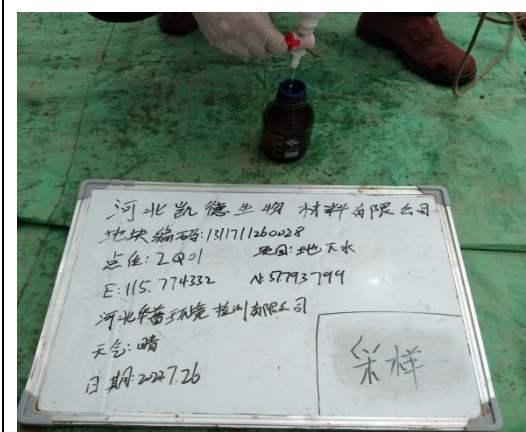 河北凯德生物材料有限公司
地块编码:1311711260028
点位:2Q01 项目:地下水
E:115.774332 N:
河北华普环境检测有限公司
天气:晴
日期:2022.7.26
采样